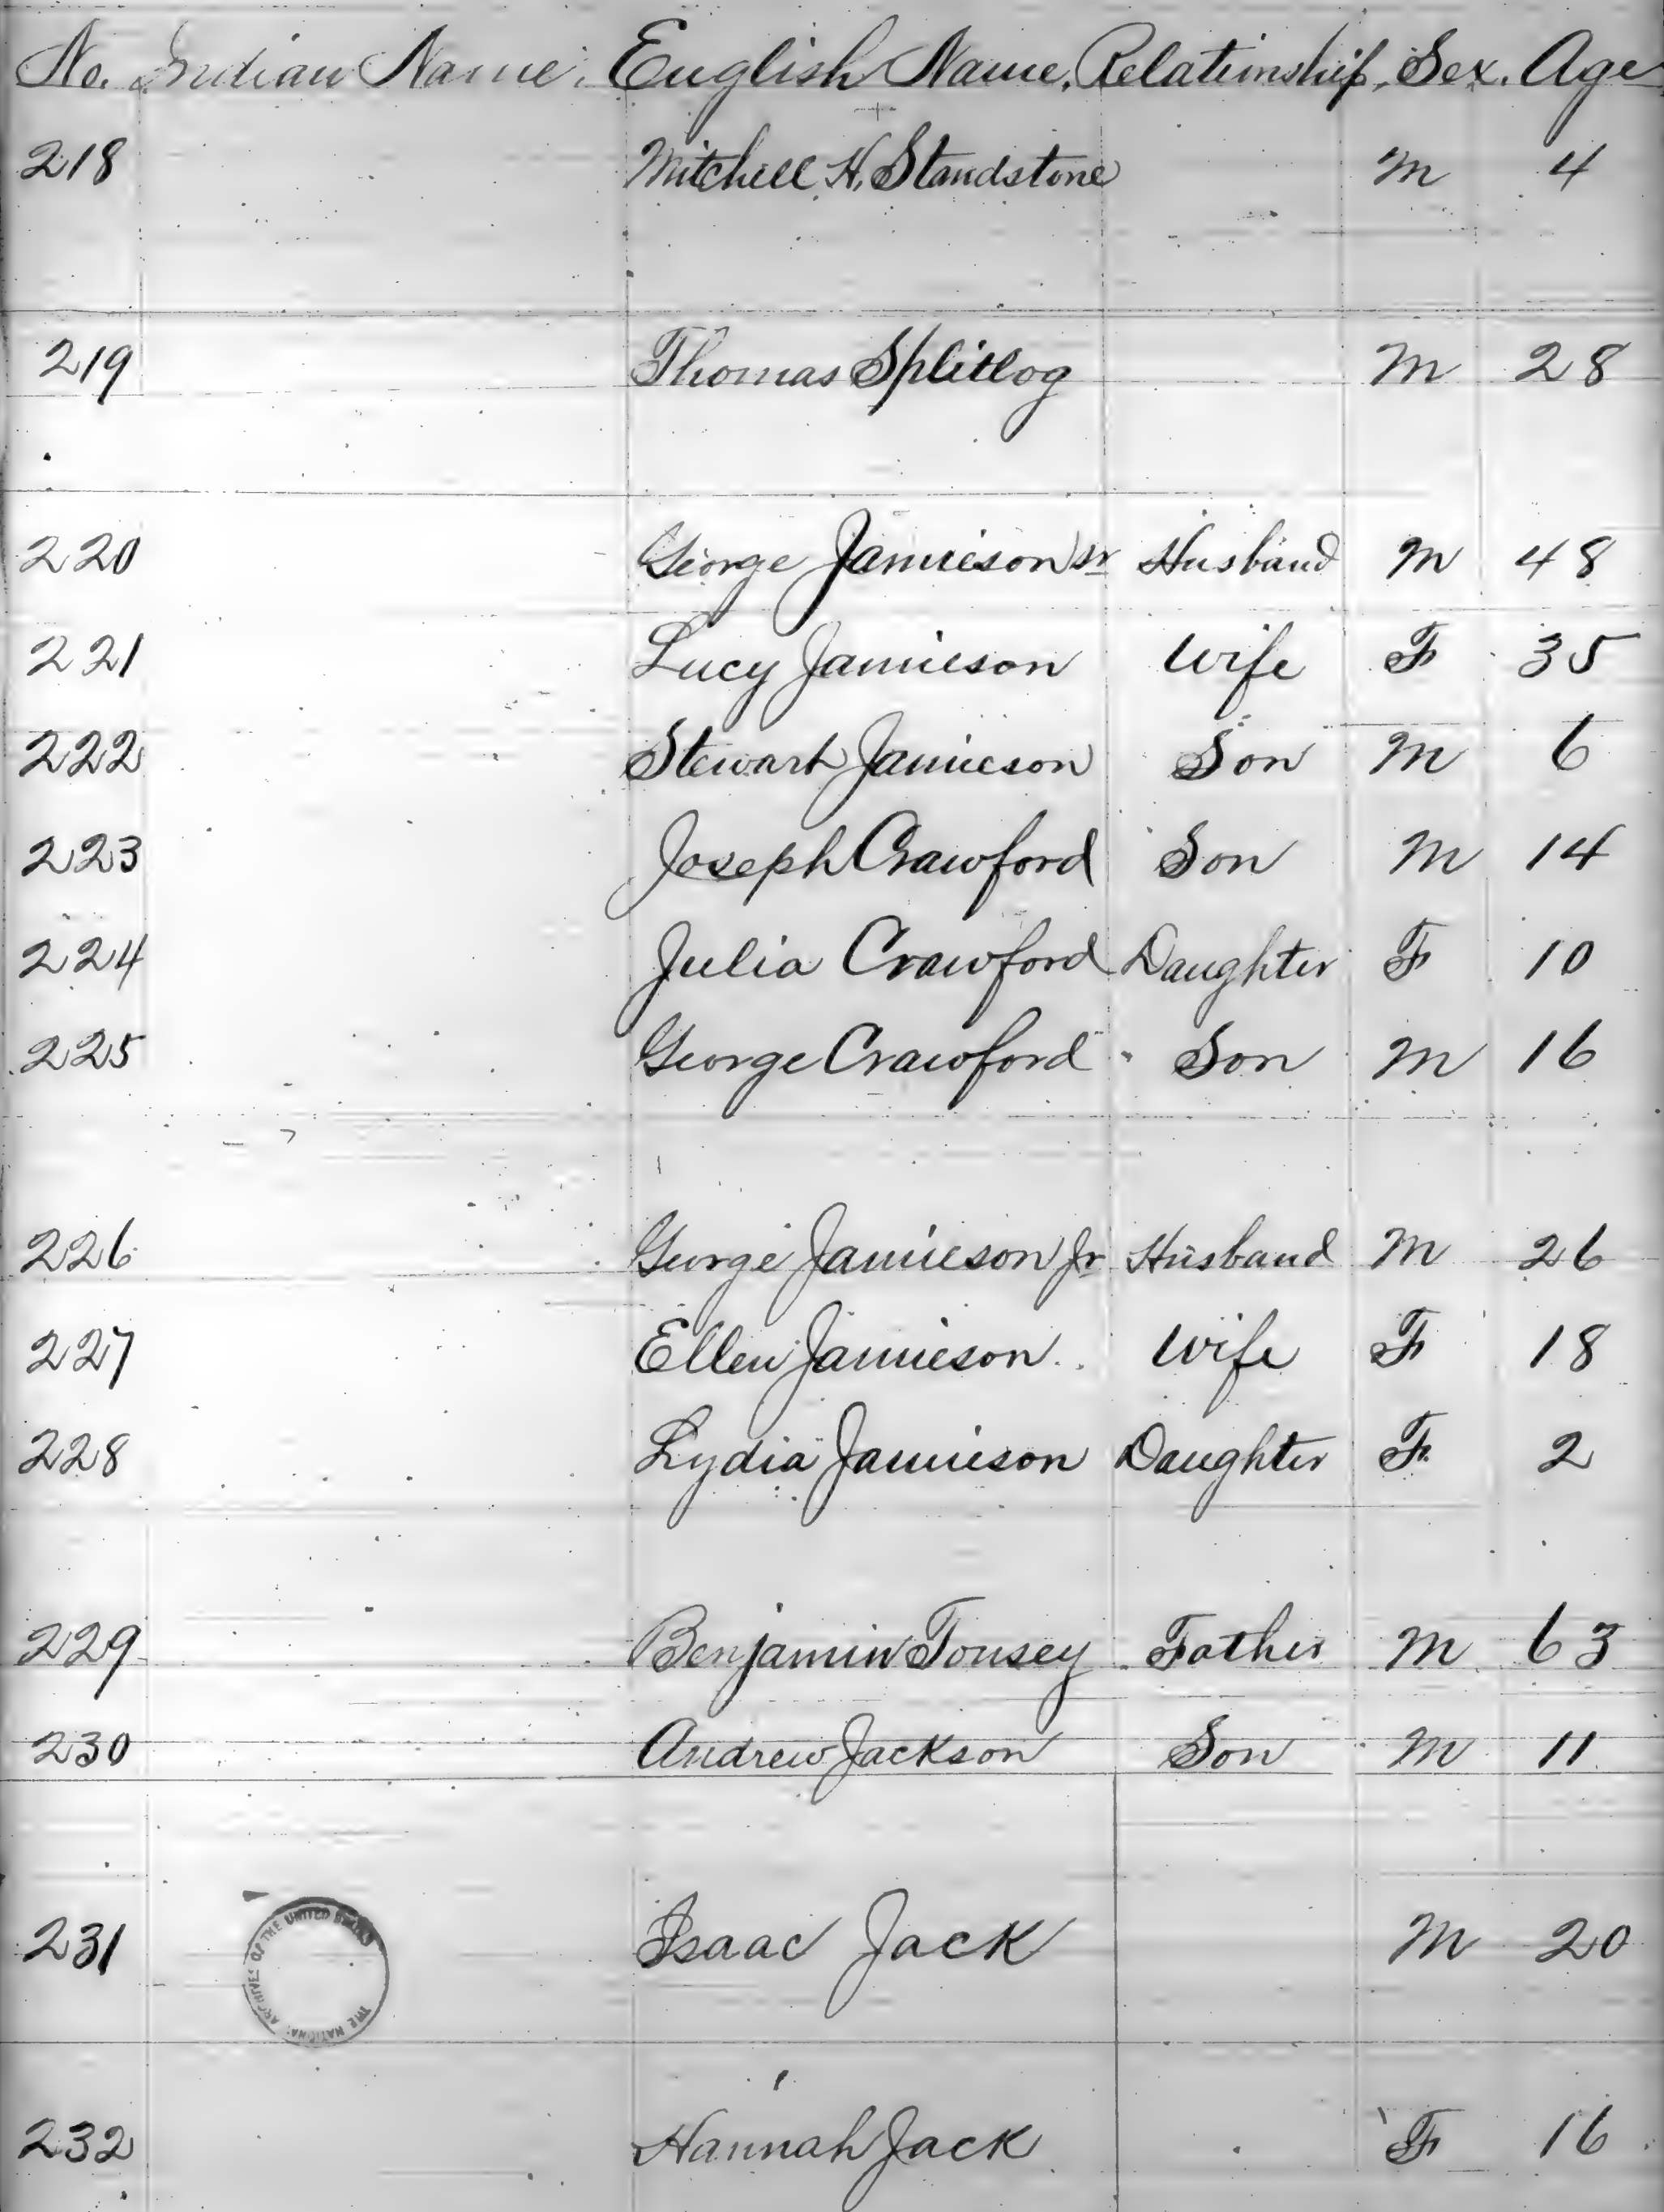 No. Indian Name. English Name. Relationship. Sex. Age
218 Mitchell H. Standstone M 4
219 Thomas Splitlog M 28
220 George Jamieson Sr Husband M 48
221 Lucy Jamieson Wife F 35
222 Stewart Jamieson Son M 6
223 Joseph Crawford Son M 14
224 Julia Crawford Daughter F 10
225 George Crawford Son M 16
226 George Jamieson Jr Husband M 26
227 Ellen Jamieson Wife F 18
228 Lydia Jamieson Daughter F 2
229 Benjamin Tousey Father M 63
230 Andrew Jackson Son M 11
231 Isaac Jack M 20
THE NATIONAL ARCHIVES OF THE UNITED STATES
232 Hannah Jack F 16